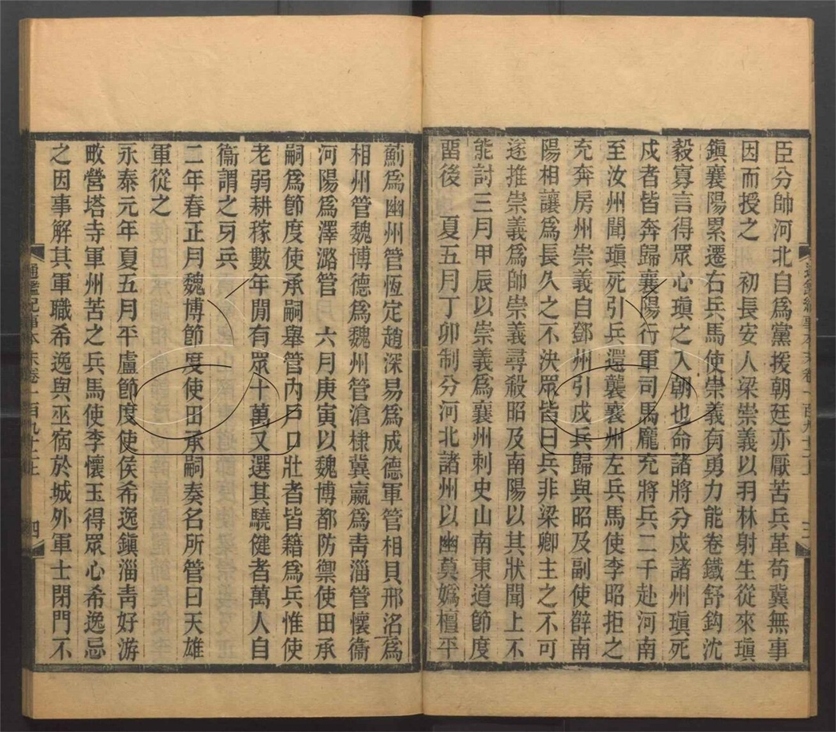 臣分帥河北自爲黨援朝廷亦厭苦兵革苟冀無事
因而授之　初長安人梁崇義以羽林射生從來瑱
鎮襄陽累遷右兵馬使崇義有勇力能卷鐵舒鈎沈
毅寡言得眾心瑱之入朝也命諸將分戍諸州瑱死
戍者皆奔歸襄陽行軍司馬龐充將兵二千赴河南
至汝州聞瑱死引兵還襲襄州左兵馬使李昭拒之
充奔房州崇義自鄧州引戍兵歸與昭及副使薛南
陽相讓爲長久之不決眾皆曰兵非梁卿主之不可
遂推崇義爲帥崇義尋殺昭及南陽以其狀聞上不
能討三月甲辰以崇義爲襄州刺史山南東道節度
留後　夏五月丁卯制分河北諸州以幽莫嬀檀平
薊爲幽州管恆定趙深易爲成德軍管相貝邢洺爲
相州管魏博德爲魏州管滄棣冀瀛爲青淄管懷衞
河陽爲澤潞管　六月庚寅以魏博都防禦使田承
嗣爲節度使承嗣舉管內戶口壯者皆籍爲兵惟使
老弱耕稼數年閒有眾十萬又選其驍健者萬人自
衞謂之牙兵
二年春正月魏博節度使田承嗣奏名所管曰天雄
軍從之
永泰元年夏五月平盧節度使侯希逸鎮淄靑好游
畋營塔寺軍州苦之兵馬使李懷玉得眾心希逸忌
之因事解其軍職希逸與巫宿於城外軍士閉門不
通鑑紀事本末卷一百九十二上
四